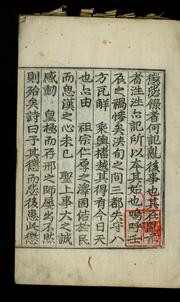 懲毖錄者何記亂後事也其在亂前
者往往亦記所以本其始也嗚呼壬
辰之禍慘矣浹旬之間三都失守八
方瓦解 乘輿播越其得有今日天
也亦由 祖宗仁厚之澤固結於民
而思漢之心未已 聖上事大之誠
感動 皇極而存邢之師屢出不然
則殆矣詩曰予其懲而毖後患此懲